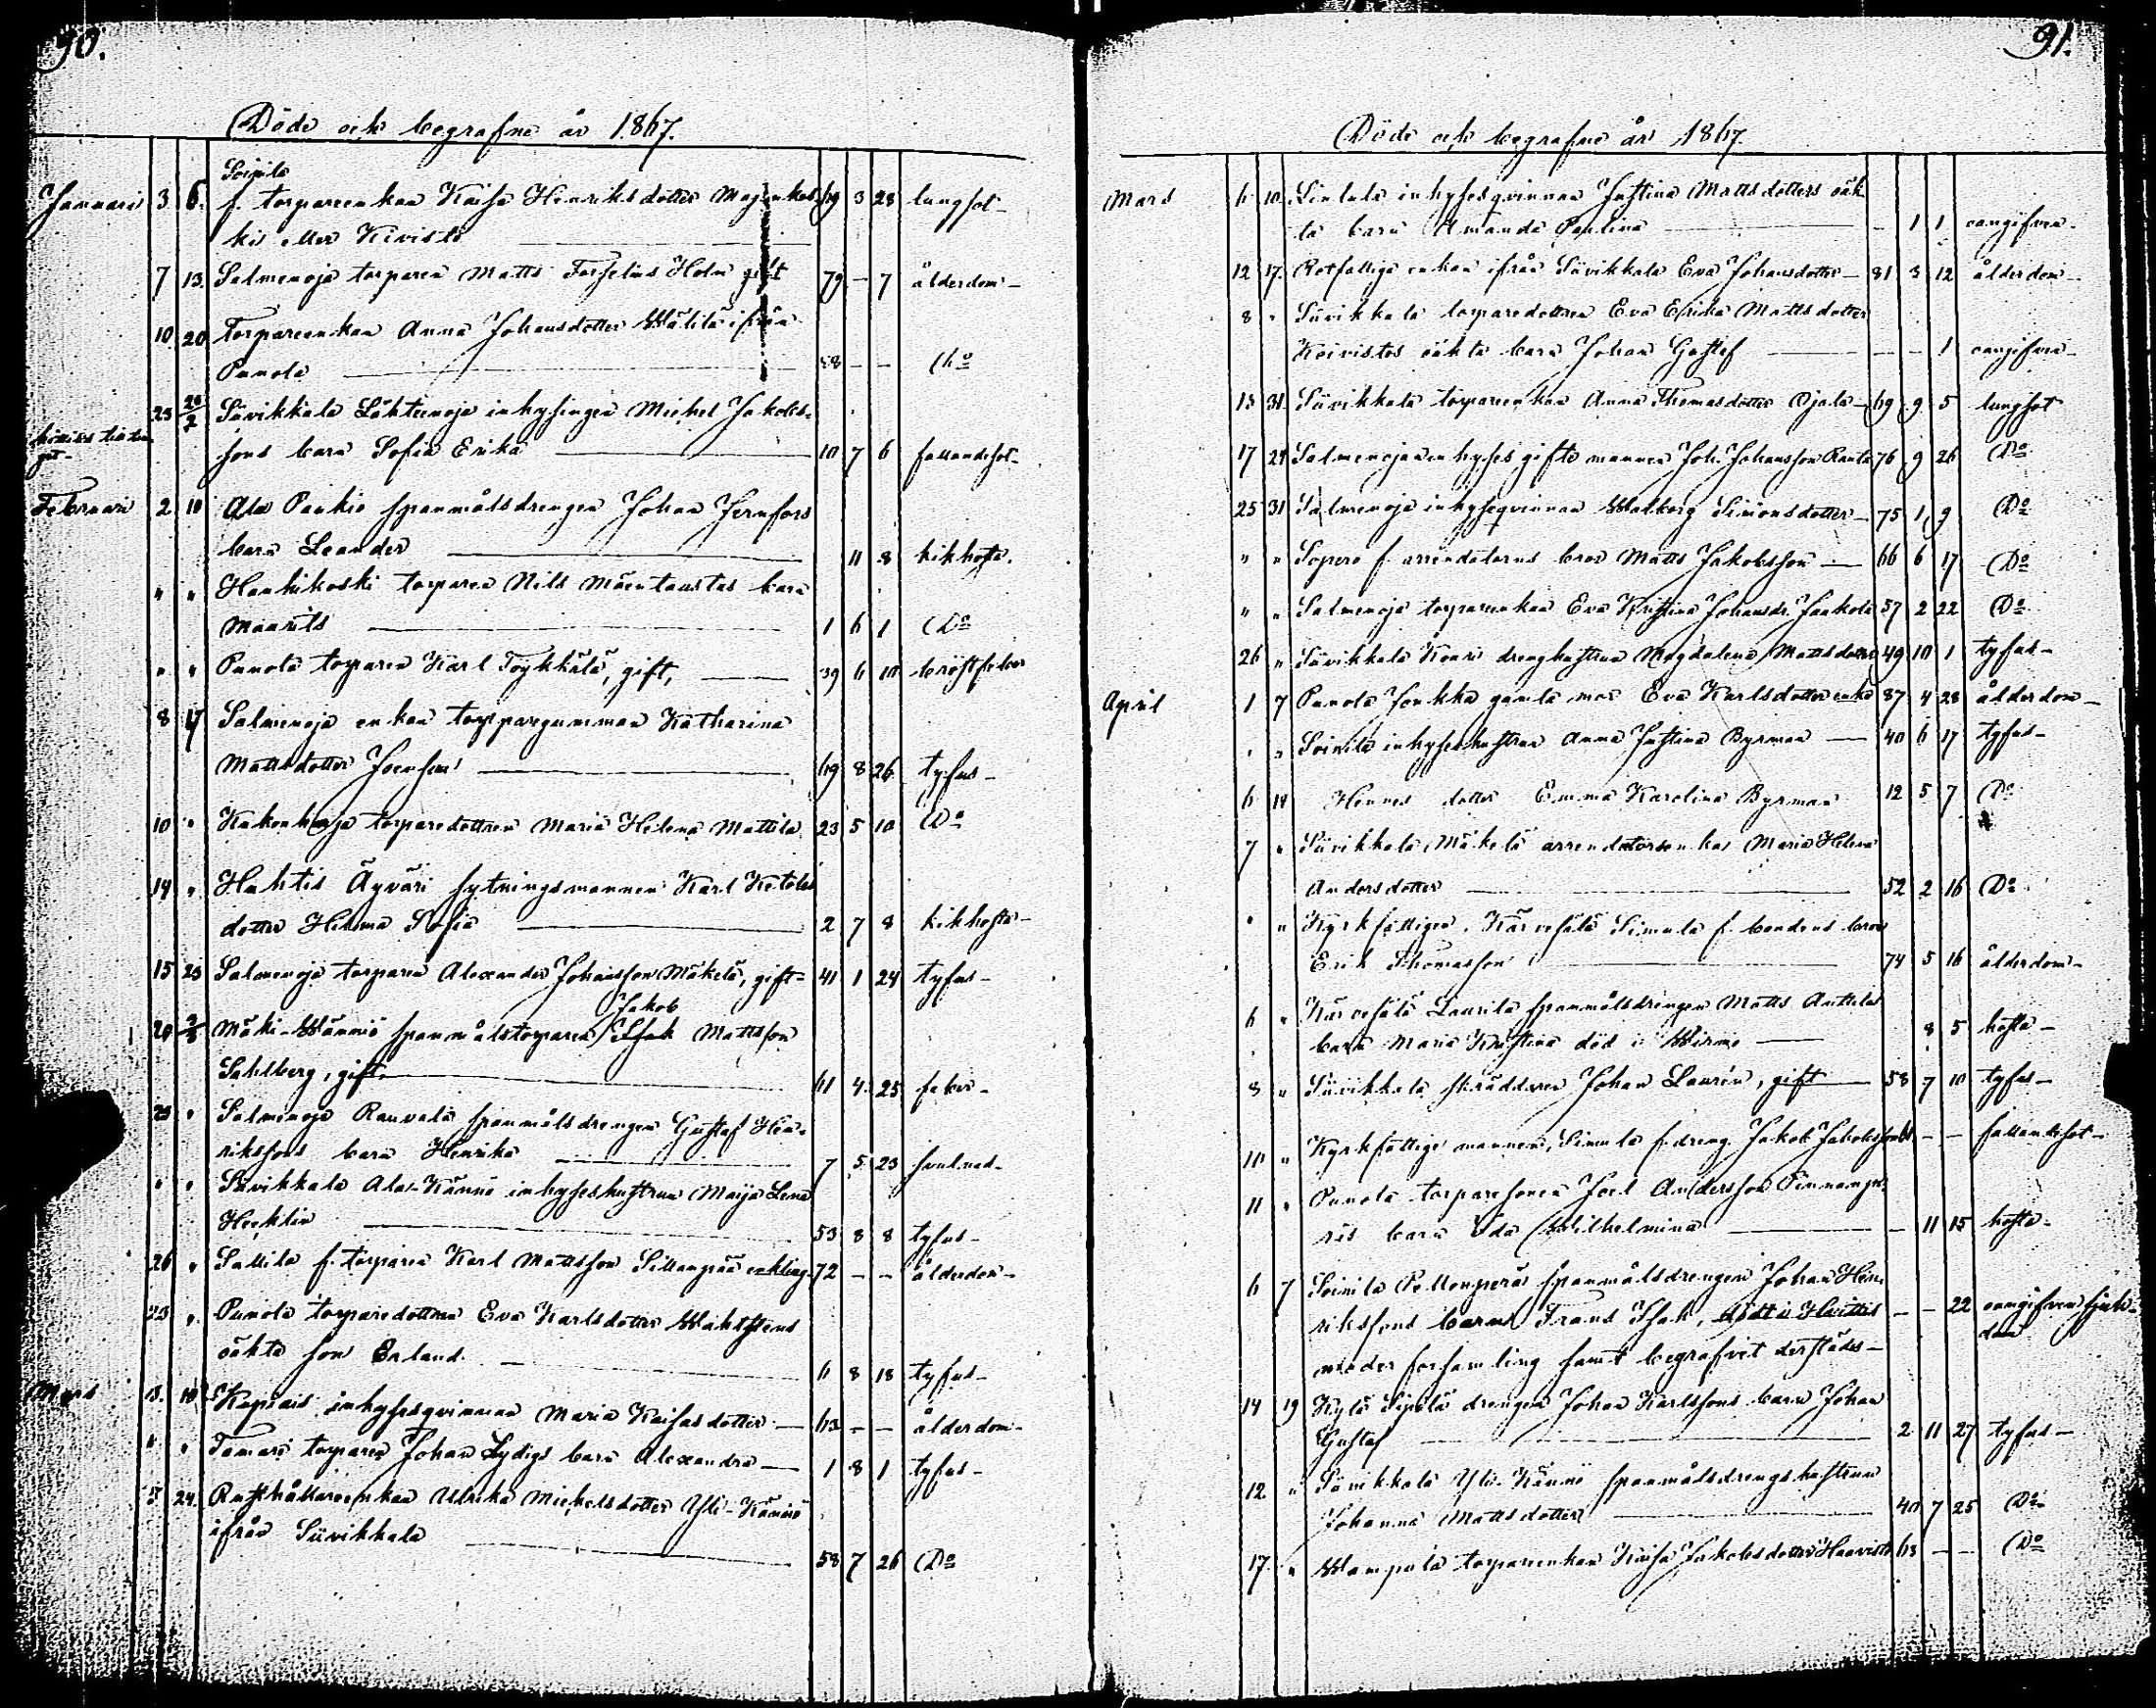 90.
Döde och begrafne år 1867.
Januari 3 6. Soinila
f. torpareenkan Kaisa Henriksdotter 69 3 28 lungsot
ki eller Kivistö
7 13. Salmenoja torparen Matts Forselius Holm gift 79 - 7 ålderdom
10. 20 Torpareenkan Anna Johansdotter Wälilä ifrån
Punola 58 - - Do
23 Siivikkala Lähteenoja inhysingen Michel Jakobs-
sons barn Sofia Erika 10 7 6 fallandesot
Februari 2 10 Ala Paukio spanmålsdrengen Johan Jernfors
barn Leander 11 8 kikhosta.
" " Hanhikoski torparen Nils Mäentaustas barn
Maurits 1 6 1 Do
" " Punola torparen Karl Töykkälä, gift, 39 6 10 bröstfeber
8 17 Salmenoja enkan torparegumman Katharina
Mattsdotter 69 8 26 tyfus
10 " torparedottren Maria Helena Mattila 23 5 10 Do
14 " Huhtis Äyväri sytningsmannen Karl Ketolas
dotter Helema Sofia 2 7 8 kikhosta
15 23 Salmenoja torparen Alexander Johansson Mäkelä, gift 41 1 24 tyfus
Jakob
20 3/3 Mäki-Männiö spanmålstorparen Isak Mattsson
Sahlberg, gift. 61 4 25 feber
23 " Salmenoja Rauvala spanmålsdrengen Gustaf Hen-
rikssons barn Henrika 7 5 23 svulnad
" " Siivikkala Ala-Kännö inhyseshustrun Maija Lena
Hecklin 53 8 8 tyfus
26 " Sallila f. torparen Karl Mattsson Sillanpää enkling 72 - - ålderdom
23 " Punola torparedottren Eva Karlsdotter
oäkta son Erland 6 8 18 tyfus
Mars 3. 10 inhysesqvinnan Maria Kaisasdotter 63 - - ålderdom
" " Tamari torparen Johan Lydigs barn Alexandra 1 8 1 tyfus
5 24. Rusthållareenkan Ulrika Michelsdotter Yli-Kännö
ifrån Siivikkala 58 7 26 Do
91.
Döde och begrafne år 1867.
Mars 6 10 inhysesqvinnan Justina Mattsdotters oäk-
ta barn Amanda Paulina - 1 1 oangifven
12 17. Rotfattiga enkan ifrån Siivikkala Eva Johansdotter 81 3 12 ålderdom
8 " Siivikkala torparedottren Eva Erika Mattsdotter
Koivistos oäkta barn Johan Gustaf - - 1 oangifven
13 31. Siivikkala torpareenkan Anna Thomasdotter Ojala 69 9 5 lungsot
17 24 Salmenoja inhyses gifte mannen Joh. Johansson Ranta 76 9 26 Do
25 31 Salmenoja inhysesqvinnan Walborg Simonsdotter 75 1 9 Do
" " Sepero f. arrendatorns bror Matts Jakobsson 66 6 17 Do
" " Salmenoja torpareenkan Eva Kristina Johansdr. Jaakola 57 2 22 Do
26 " Siivikkala drenghustrun Magdalena Mattsdotter 49 10 1 tyfus
April 1 7 Punola Jonkka gamla mor Eva Karlsdotter enka 87 4 28 ålderdom
" " Soinila inhyseshustrun Anna Justina Byrman 40 6 17 tyfus
6 14 Hennes dotter Emma Karolina Byrman 12 5 7 Do
7 " Siivikkala Mäkelä arrendatorsenkan Maria Helena
Andersdotter 52 2 16 Do
" " Kyrkfattigen. Karvesälä Simula f. bondens bror
Erik Thomasson 74 5 16 ålderdom
6 " Karvesälä Laurila spanmålsdrengen Matts Anttilas
barn Maria Kristina död i Wirmo 8 5 hosta
8 " Siivikkala skräddaren Johan Laurén, gift 58 7 10 tyfus
10 " Kyrkfattige mannen, Simula f. dreng Jakob Jakobsson - - fallandesot
11 " Punola torparesonen Joel Andersson
barn Ida Wilhelmina - 11 15 hosta
6 7 Soinila Pellonperä spanmålsdrengen Johan Hen-
rikssons barn Frans Isak, dödt i Huittis
moder församling samt begrafvit derstädes - - 22 oangifven sjuk-
dom
14 19 Kylä Sipilä drengen Johan Karlssons barn Johan
Gustaf 2 11 27 tyfus
12 " Siivikkala Yli-Kännö spanmålsdrengshustrun
Johanna Mattsdotter 40 7 25 Do
17. " Wampula torpareenkan Kaisa Jakobsdotter Haavisto 63 - - Do